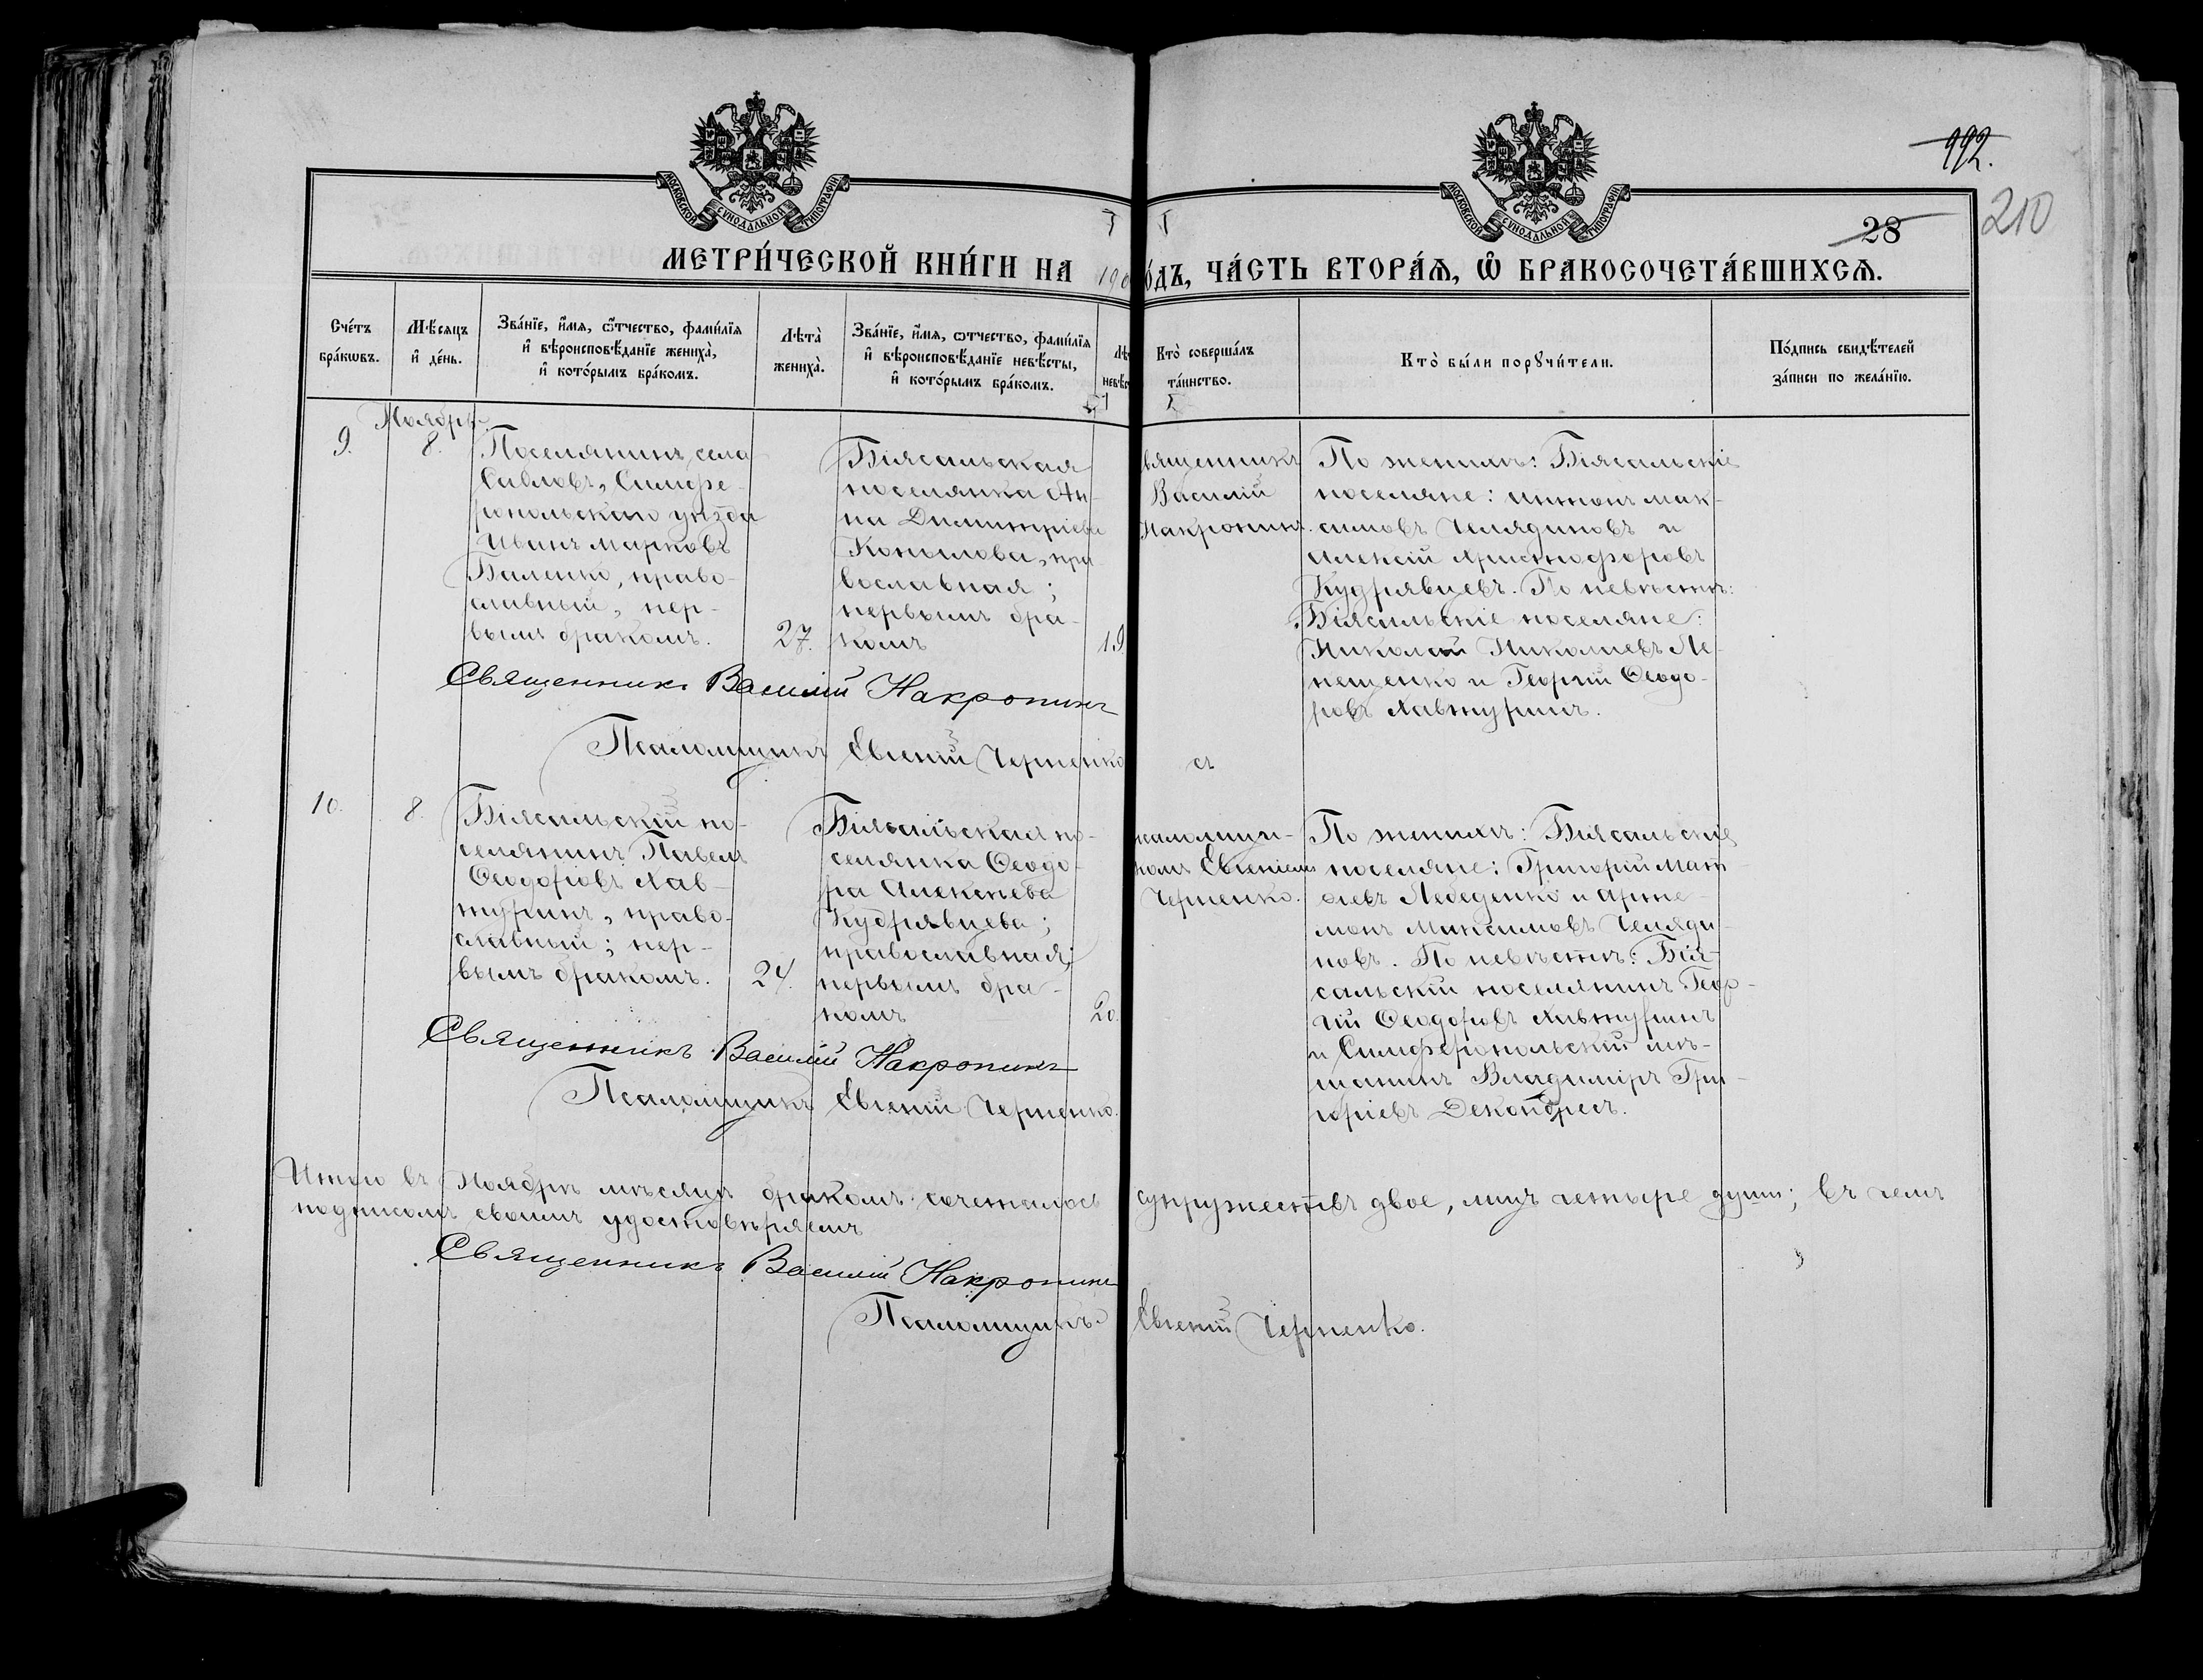 992.
210
28
МОСКОВСКОЙ СѴНОДАЛЬНОЙ ТИПОГРАФІИ
МОСКОВСКОЙ СѴНОДАЛЬНОЙ ТИПОГРАФІИ
МЕТРИ́ЧЕСКОЙ КНИ́ГИ НА 190
О́ДЪ, ЧА́СТЬ ВТОРА́Ѧ, Ѡ҆ БРАКОСОЧЕТА́ВШИХСѦ.
Сче́тъ
бра́кωвъ.
Мѣ́сяцъ
и҆ де́нь.
Зва́нїе, и҆́мя, ѻ҆́тчество, фами́лїя
и҆ вѣроисповѣ́данїе жениха̀,
и҆ кото́рымъ бра́комъ.
Лѣта̀
жениха̀.
Зва́нїе, и҆́мя, ѻтчество, фами́лїя
и҆ вѣроисповѣ́данїе невѣ́сты,
и҆ кото́рымъ бра́комъ.
Лѣ
невѣс
Кто̀ соверша́лъ
та́инство.
Кто̀ бы́ли порꙋчи́тели.
По́дпись свидѣ́телей
за́писи по жела́нїю.
Ноябрь.
9.
8.
Поселянинъ села
Сабловъ, Симфе-
ропольскаго уѣзда
Иванъ Марковъ
Баленко, право-
славный, пер-
вымъ бракомъ.
27.
Біясальская
поселянка Ан-
на Димитріева
Копылова, пра
вославная;
первымъ бра-
комъ
19.
вященникъ
Василій
Накропинъ.
По женихѣ: Біясальскіе
поселяне: Антонъ Мак-
симовъ Челядиновъ и
Алексій Христофоровъ
Кудрявцевъ. По невѣстѣ:
Біясальскіе поселяне:
Николай Николаевъ Ле-
пещенко и Георгій Ѳеодо-
ровъ Хавтуринъ.
Священникъ Василій Накропинъ
Псаломщикъ Евгеній Черненко
съ
10.
8.
Біясальскій по-
селянинъ Павелъ
Ѳеодоровъ Хав-
туринъ, право-
славный; пер-
вымъ бракомъ.
24.
Біясальская по-
селянка Ѳеодо-
ра Алексѣева
Кудрявцева;
православная;
первымъ бра-
комъ
20.
саломщи-
комъ Евгеніемъ
Черненко.
По женихѣ: Біясальскіе
поселяне: Григорій Матѳ
ѳіевъ Лебеденко и Арте-
монъ Максимовъ Челяди-
новъ. По невѣстѣ: Бія-
сальскій поселянинъ Геор-
гій Ѳеодоровъ Хавтуринъ
и Симферопольскій мѣ-
щанинъ Владиміръ Гри-
горіевъ Декондрес.
Священникъ Василій Накропинъ
Псаломщикъ Евгеній Черненко.
Итого въ Ноябрѣ мѣсяцѣ бракомъ сочеталось супружествъ двое, лицъ четыре души; въ чемъ
подписомъ своимъ удостовѣряемъ
Священникъ Василій Накропинъ
Псаломщикъ Евгеній Черненко.